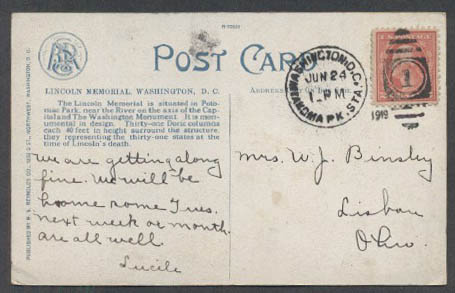 POST CARD
LINCOLN MEMORIAL, WASHINGTON, D. C.
The Lincoln Memorial is situated in Poto-
mac Park, near the River on the axis of the Cap-
itol and The Washington Monument. It is mon-
umental in design. Thirty-one Doric columns
each 40 feet in height surround the structure,
they representing the thirty-one states at the
time of Lincoln's death.
we are getting along
fine. We will be
home some Tues.
next week or month.
are all well
Lucile
WASHINGTON, D.C.
JUN 24
1 PM
PK. STA.
1919
1
Mrs. W. J.
Lisbon
Ohio